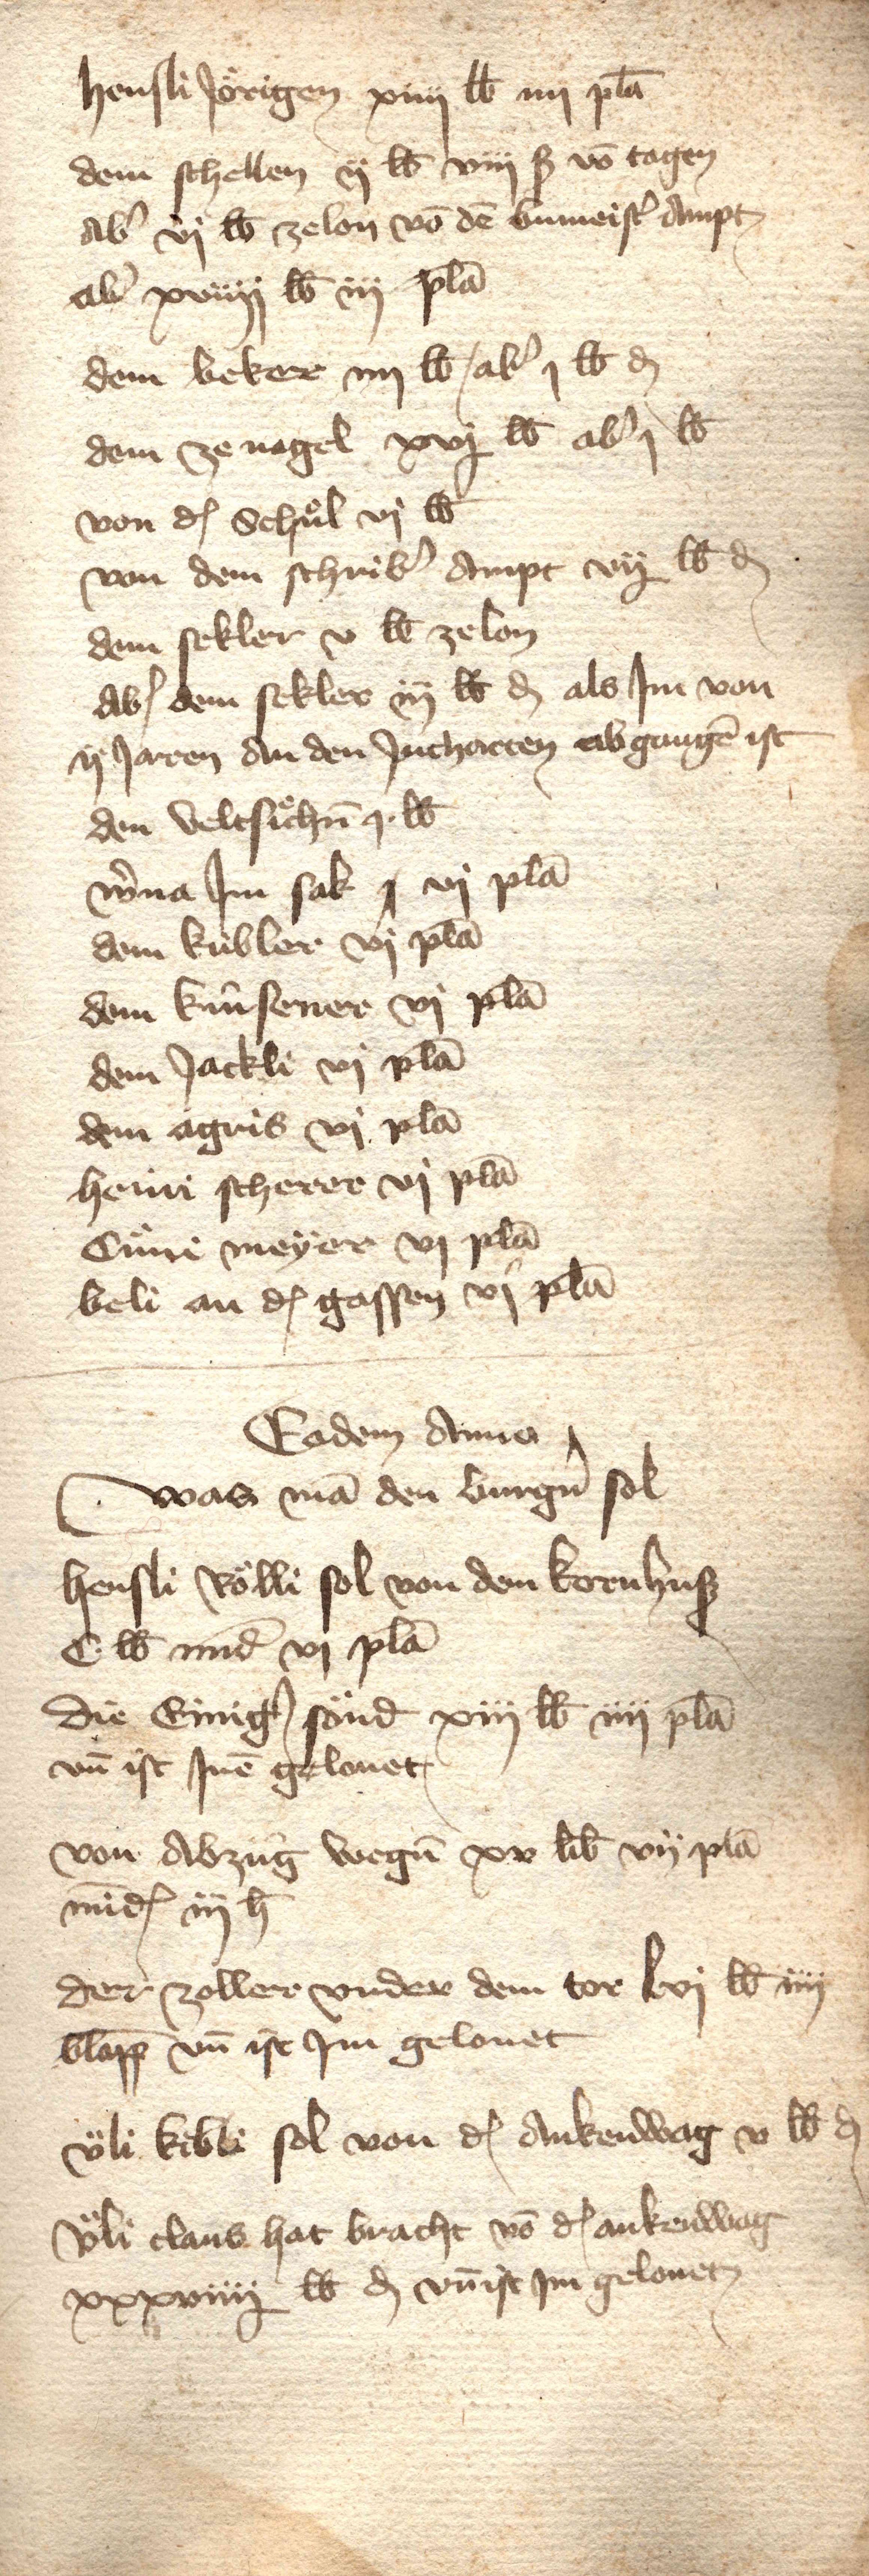 hensli Jörigen xiiij lb iiij plā
dem schellen ij lb viij ß vō tagen
Ab' vj lb zelon vō dē bumeist' Ampt
ab' xviiij lb iij plā
dem beker iiij lb / ab' j lb d
dem ze nagel xvj lb ab' j lb
von d' Schůl vj lb
von dem schrib' Ampt vij lb d
dem sekler v lb zelon
Ab' dem sekler iij lb d als Jm von
ij Jaren An den Jucharten abgangē ist
den veltsiͤchn̄ j lb
Jm sak vj plā
dem kübler vj plā
dem kürsener vj plā
dem Jackli vj plā
dem agris vj plā
heini scherer vj plā
Cůni meyer vj plā
beli an d' gassen vj plā
Eodem Anno
was mā den burgn̄ sol
hensli Rölli sol von dem kornhuß
C lb mīd' vj plā
die Einig' sönd xiij lb iiij plā
vn̄ ist Jnē gelonet
von Abzug wegn̄ xv lib vij plā
mīd' iij h
der zoller vnder dem tor lvj lb iiij
blapp vn̄ ist Jm gelonet
vͤli kibli sol von d' Ankenwag v lb d
Vͤli claus hat bracht vō d' ankenwag
xxxviiij lb d vn̄ ist Jm gelonet